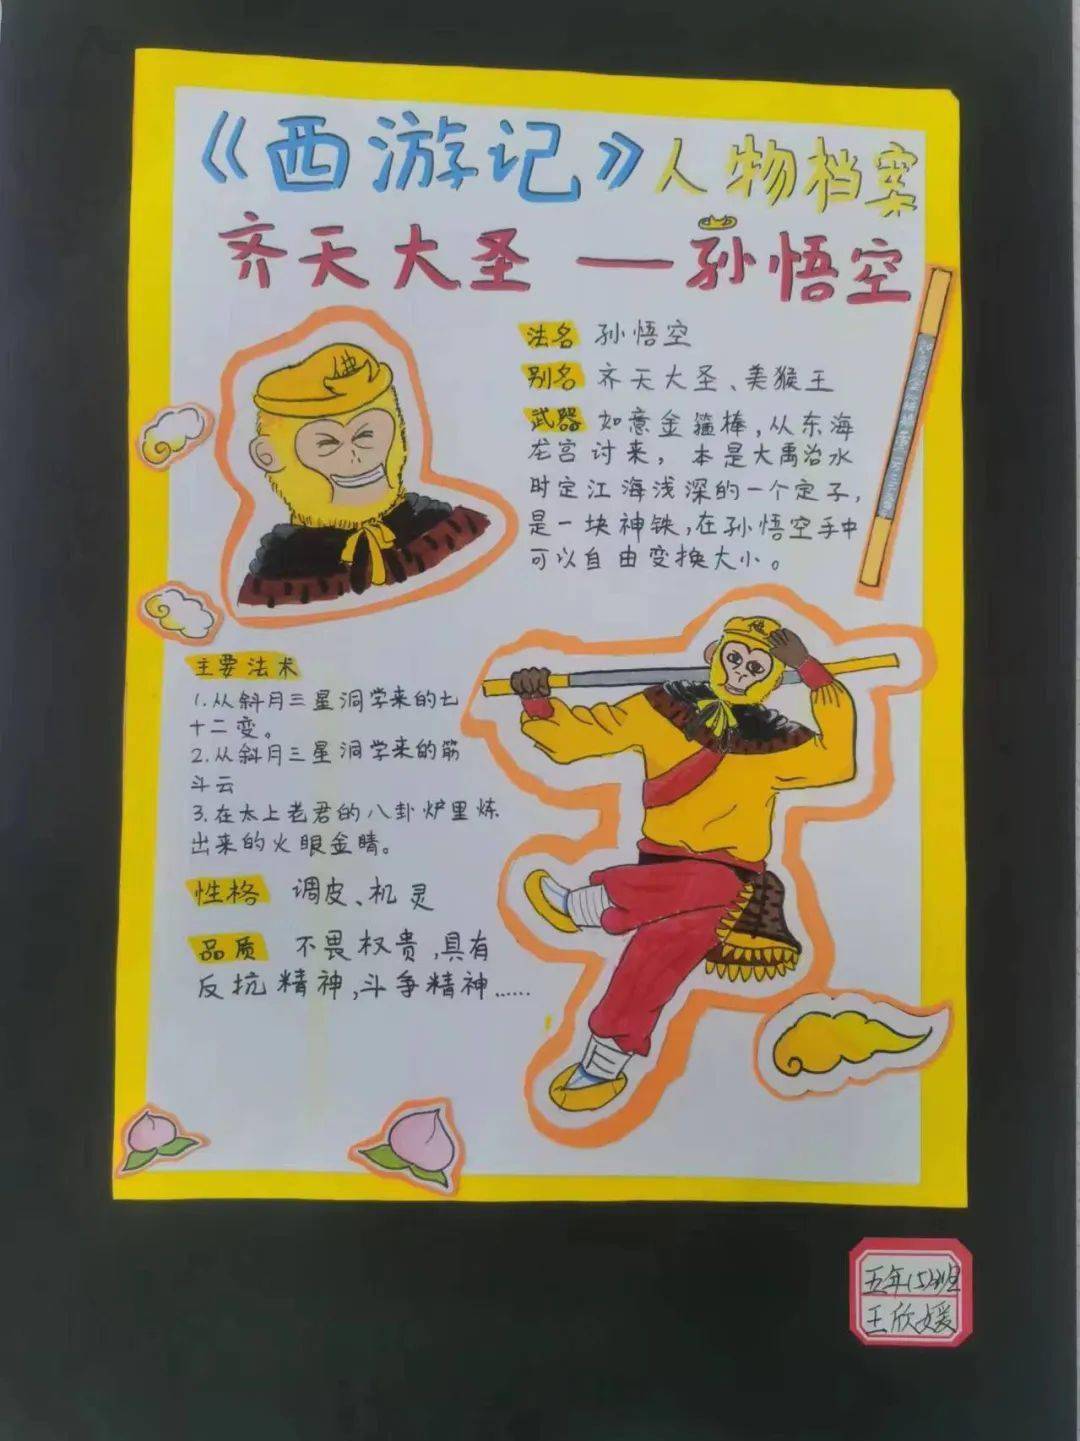 《西游记》人物档案
齐天大圣——孙悟空
法名 孙悟空
别名 齐天大圣、美猴王
武器 如意金箍棒,从东海
龙宫讨来,本是大禹治水
时定江海浅深的一个定子,
是一块神铁,在孙悟空手中
可以自由变换大小。
主要法术
1.从斜月三星洞学来的七
十二变。
2.从斜月三星洞学来的筋
斗云
3.在太上老君的八卦炉里炼
出来的火眼金睛。
性格 调皮、机灵
品质 不畏权贵,具有
反抗精神,斗争精神……
五年(5)班
王欣媛